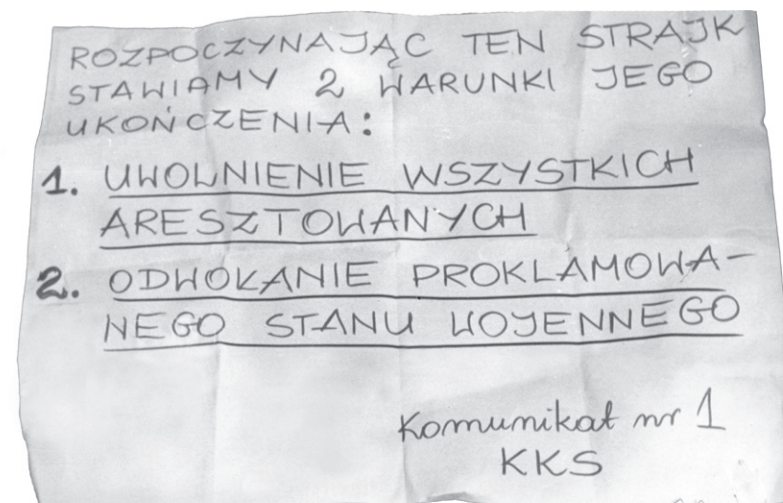 ROZPOCZYNAJĄC TEN STRAJK
STAWIAMY 2 WARUNKI JEGO
UKOŃCZENIA:
1. UWOLNIENIE WSZYSTKICH
ARESZTOWANYCH
2. ODWOŁANIE PROKLAMOWA-
NEGO STANU WOJENNEGO
Komunikat nr 1
KKS